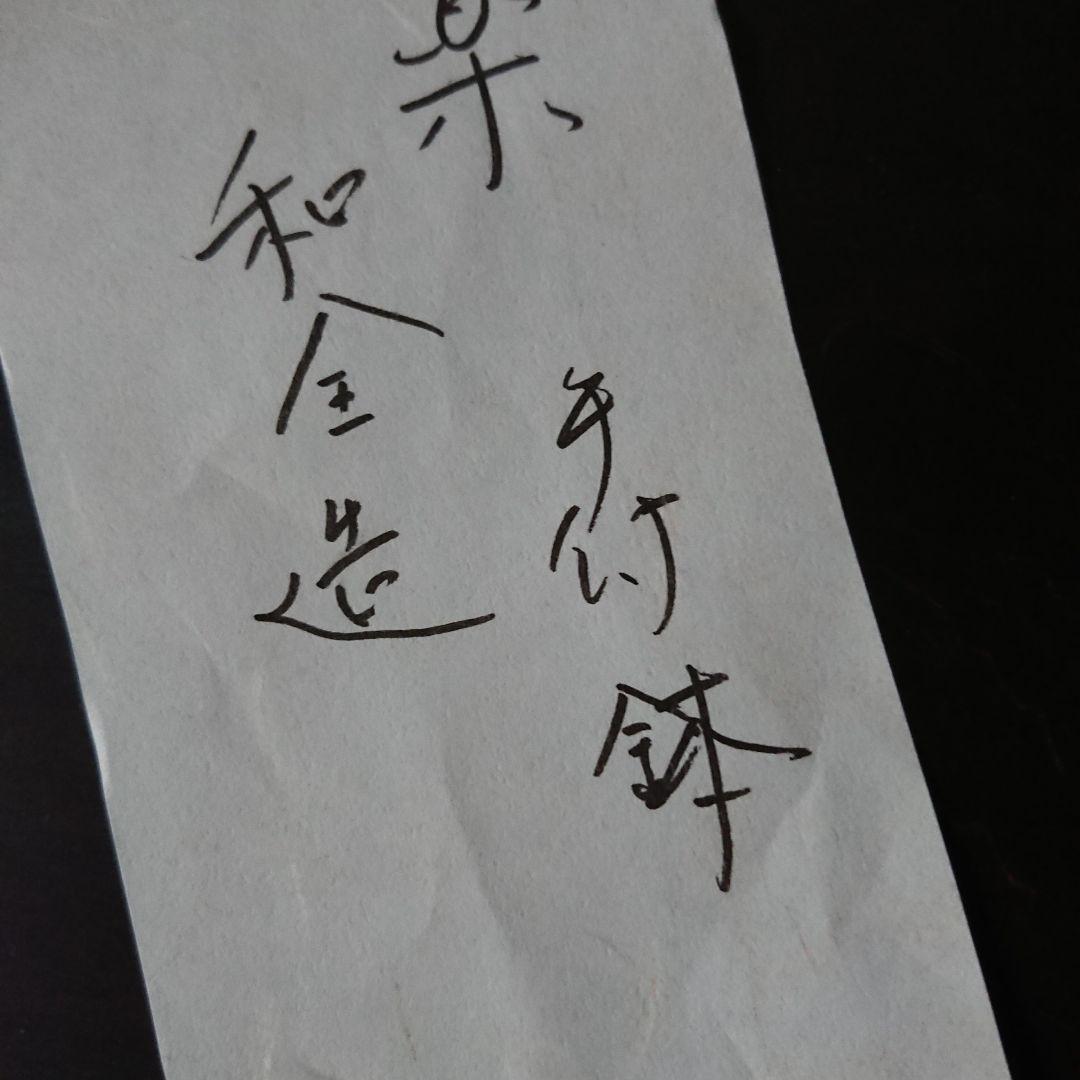 楽手付鉢
和全造